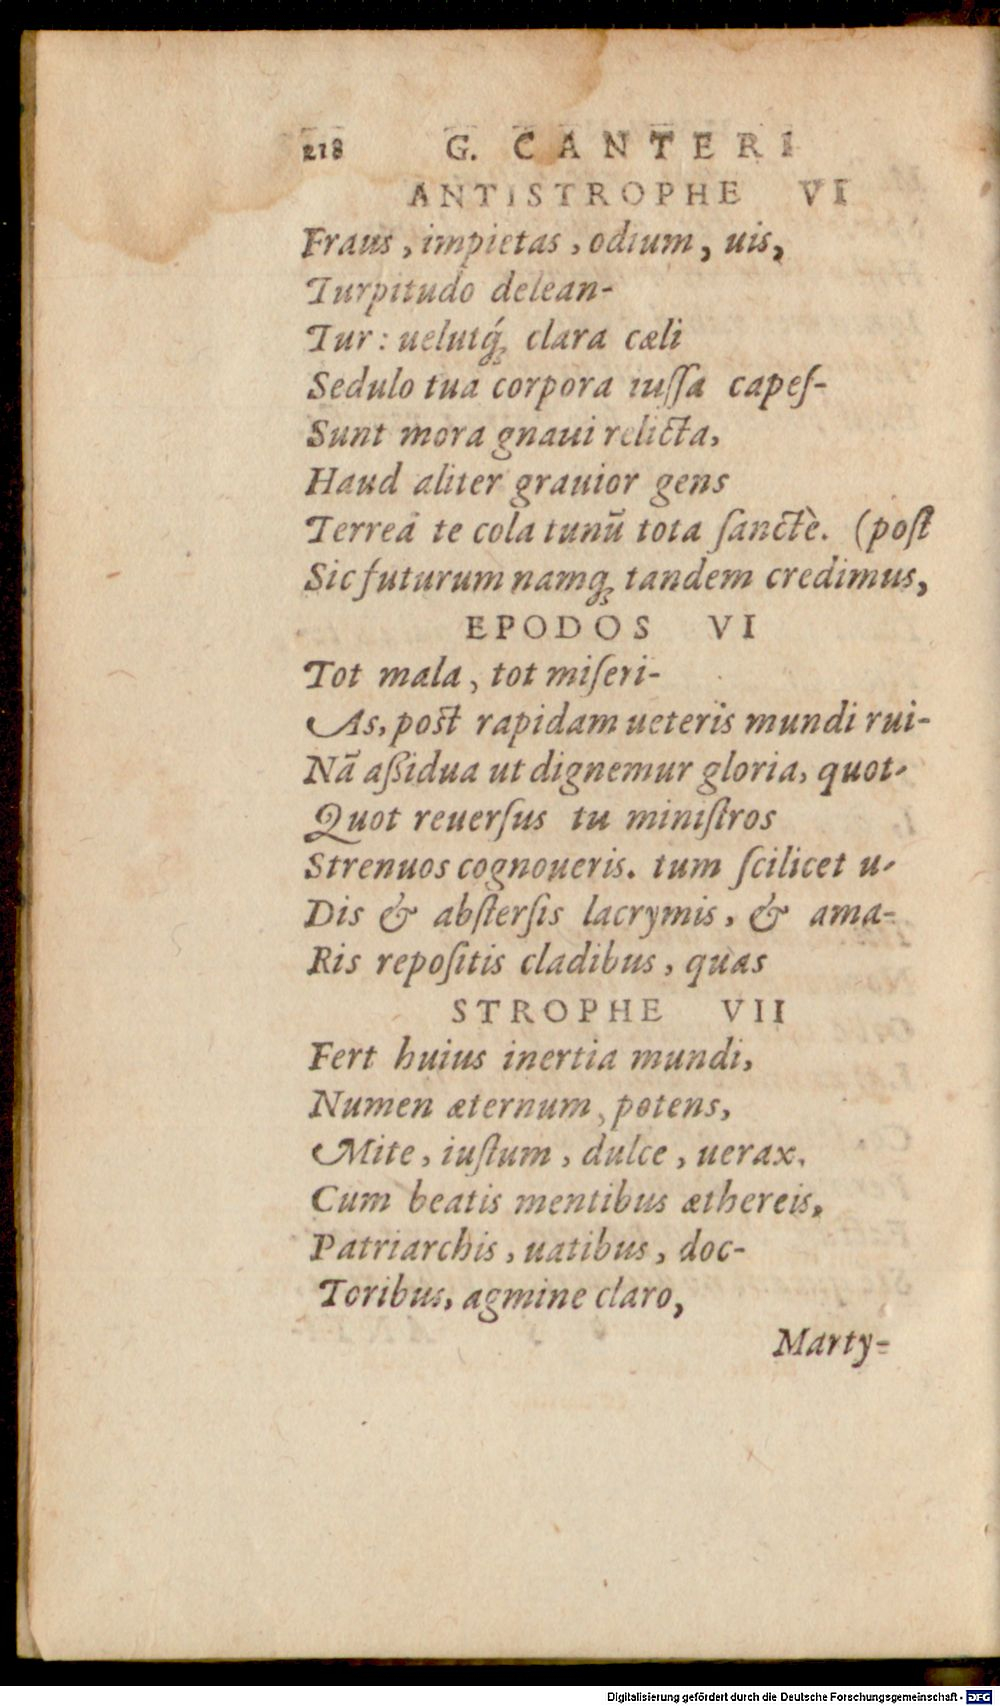 218 G. CANTERI
ANTISTROPHE VI
Fraus, impietas, odium, uis,
Turpitudo delean-
Tur: uelutq́ꝫ clara cæli
Sedulo tua corpora iuſſa capeſ-
Sunt mora gnaui relicta,
Haud aliter grauior gens
Terreā te cola tunū tota ſanctè. (poſt
Sic futurum namqꝫ tandem credimus,
EPODOS VI
Tot mala, tot miſeri-
As, poſt rapidam ueteris mundi rui-
Nā aßidua ut dignemur gloria, quot-
Quot reuerſus tu miniſtros
Strenuos cognoueris. tum ſcilicet u-
Dis & abſterſis lacrymis, & ama-
Ris repoſitis cladibus, quas
STROPHE VII
Fert huius inertia mundi,
Numen æternum, potens,
Mite, iuſtum, dulce, uerax,
Cum beatis mentibus æthereis,
Patriarchis, uatibus, doc-
Toribus, agmine claro,
Marty-
Digitalisierung gefördert durch die Deutsche Forschungsgemeinschaft - DFG